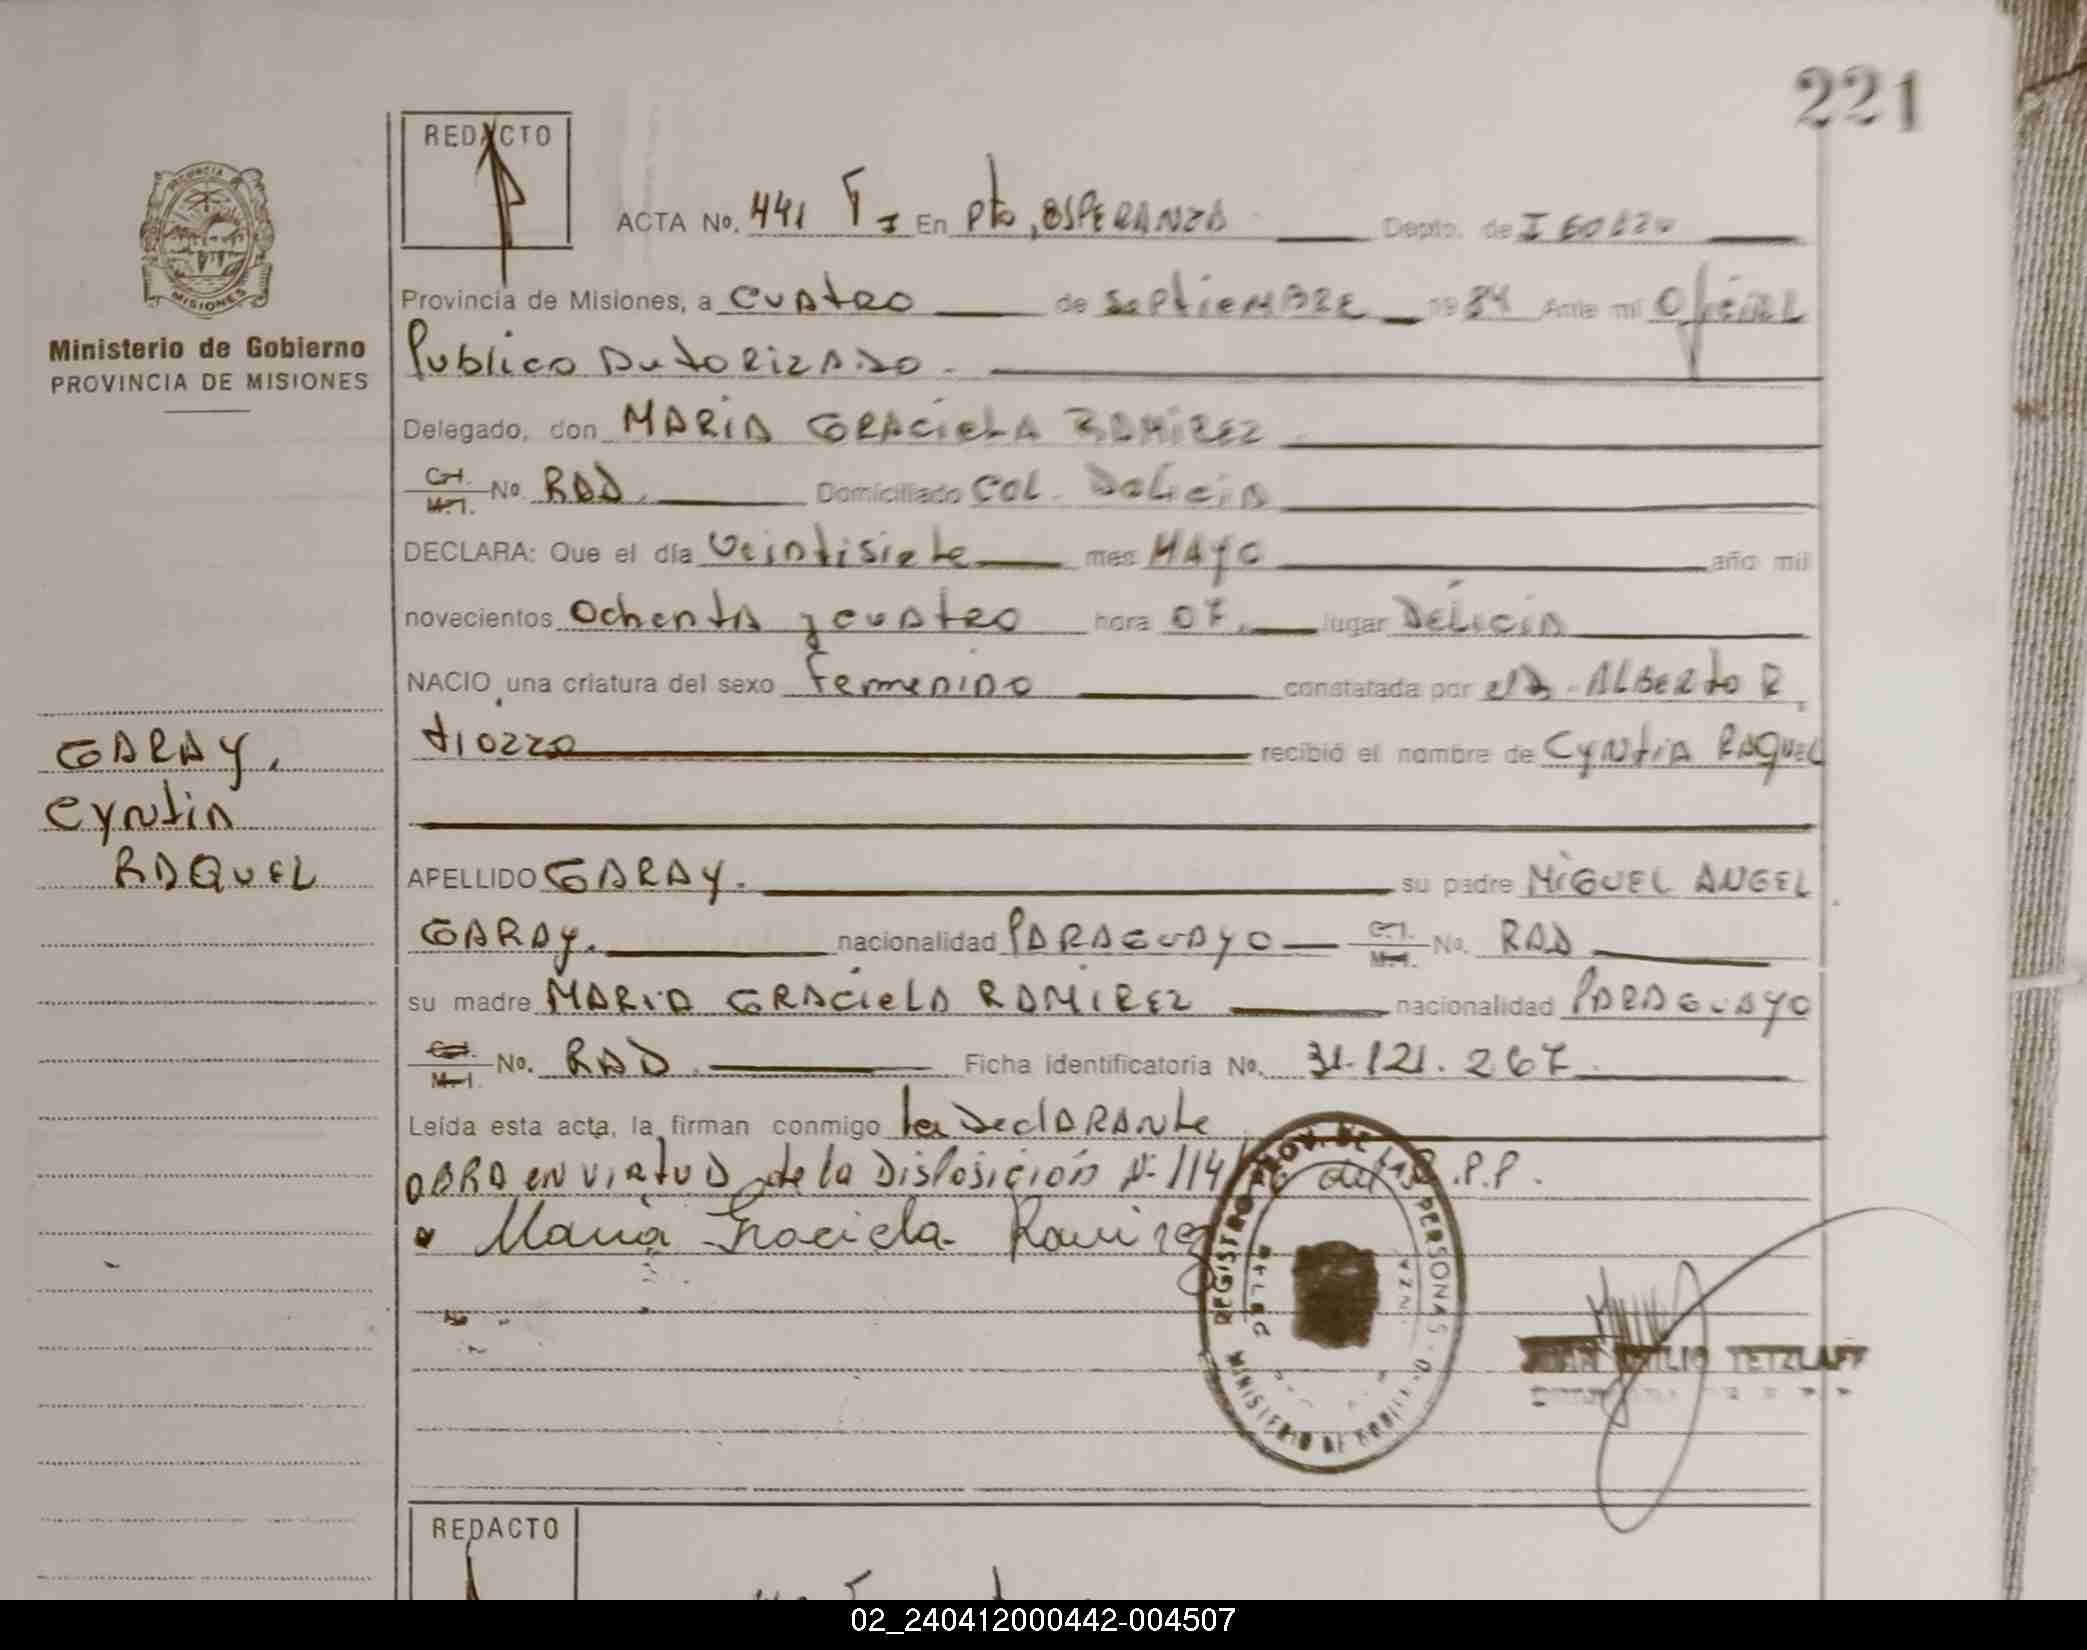 221
REDACTO
ACTA No. 441 T I En Pto, ESPERANZA Depto. de IGUAZU
PROVINCIA
MISIONES
Provincia de Misiones, a cuatro de septiembre 1984 Ante mí Oficial
Ministerio de Gobierno
PROVINCIA DE MISIONES
Publico Autorizado.
Delegado, don MARIA GRACIELA RAMIREZ
C.I. M.I. No. RAD. Domiciliado Col. Delicia
DECLARA: Que el día veintisiete mes MAYO año mil
novecientos ochenta y cuatro hora 07. lugar Delicia
NACIO una criatura del sexo femenino constatada por el Dr. ALBERTO R.
tiozzo recibió el nombre de CYNTIA RAQUEL
GARAY,
CYNTIA
RAQUEL
APELLIDO GARAY. su padre MIGUEL ANGEL
GARAY. nacionalidad PARAGUAYO C.I. M.I. No. RAD
su madre MARIA GRACIELA RAMIREZ nacionalidad PARAGUAYO
C.I. M.I. No. RAD. Ficha identificatoria No. 31.121.267
Leída esta acta, la firman conmigo la declarante
OBRA en virtud de la Disposición Nº 114 del R.P.P.
María Graciela Ramirez
REGISTRO PROV. DE LAS PERSONAS
MINISTERIO DE GOBIERNO
JUAN EMILIO TETZLAFF
REDACTO
02_240412000442-004507